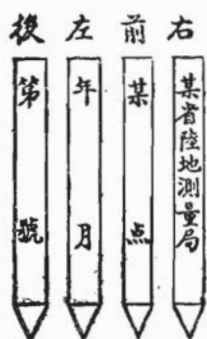 右
某省陸地測量局
前
某点
左
年月
後
第號